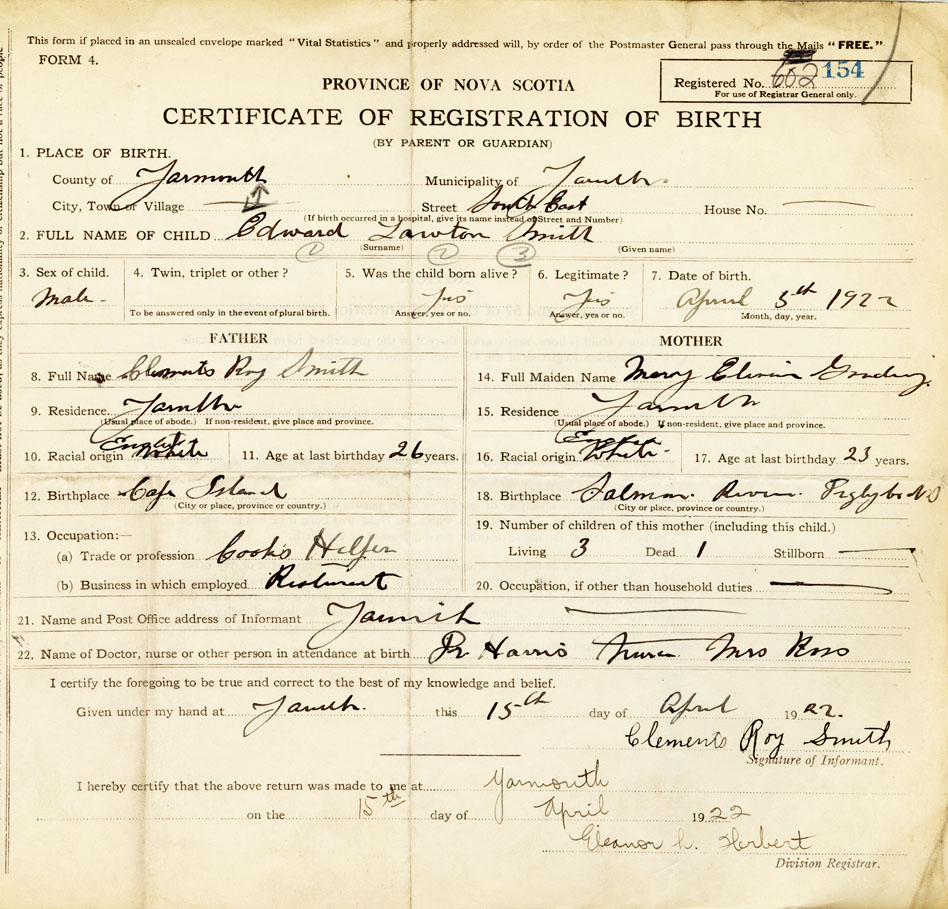 This form if placed in an unsealed envelope marked "Vital Statistics" and properly addressed will, by order of the Postmaster General pass through the Mails "FREE."
FORM 4.
Registered No. 602 154
For use of Registrar General only.
PROVINCE OF NOVA SCOTIA
CERTIFICATE OF REGISTRATION OF BIRTH
(BY PARENT OR GUARDIAN)
1. PLACE OF BIRTH.
County of Yarmouth Municipality of
City, Town or Village Street South East House No.
(If birth occurred in a hospital, give its name instead of Street and Number)
2. FULL NAME OF CHILD Edward Lawton Smith
(Surname) (Given name)
1 2 3
3. Sex of child. 4. Twin, triplet or other? 5. Was the child born alive? 6. Legitimate? 7. Date of birth.
Male - Yes Yes April 5th 1922
To be answered only in the event of plural birth. Answer, yes or no. Answer, yes or no. Month, day, year.
FATHER MOTHER
8. Full Name Clements Roy Smith 14. Full Maiden Name Mary
9. Residence 15. Residence
(Usual place of abode.) If non-resident, give place and province. (Usual place of abode.) If non-resident, give place and province.
10. Racial origin White 11. Age at last birthday 26 years. 16. Racial origin White 17. Age at last birthday 23 years.
12. Birthplace Cape Island 18. Birthplace Salmon River Digby Co NS
(City or place, province or country.) (City or place, province or country.)
13. Occupation:— 19. Number of children of this mother (including this child.)
(a) Trade or profession Cooks Helper Living 3 Dead 1 Stillborn
(b) Business in which employed Resturent 20. Occupation, if other than household duties
21. Name and Post Office address of Informant
22. Name of Doctor, nurse or other person in attendance at birth Dr Harris Nurse Mrs Ross
I certify the foregoing to be true and correct to the best of my knowledge and belief.
Given under my hand at this 15th day of April 1922.
Clements Roy Smith
Signature of Informant.
I hereby certify that the above return was made to me at Yarmouth
on the 15th day of April 1922
Eleanor L. Herbert
Division Registrar.